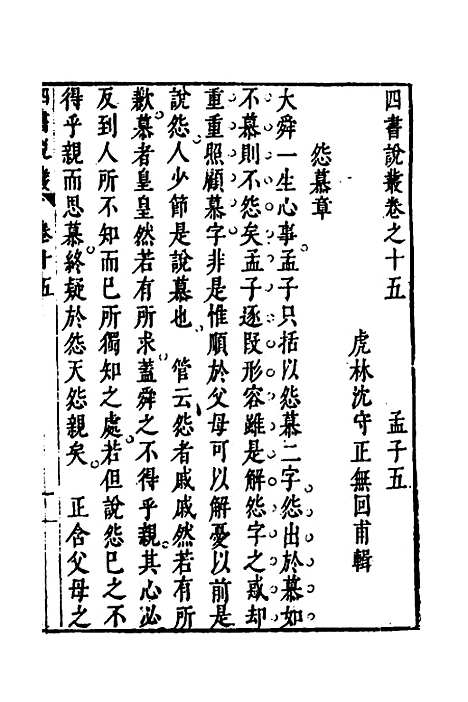 四書說叢卷之十五 孟子五
虎林沈守正無回甫輯
怨慕章
大舜一生心事孟子只括以怨慕二字怨出於慕如
不慕則不怨矣孟子逐段形容雖是解怨字之惑却
重重照顧慕字非是惟順於父母可以解憂以前是
說怨人少節是說慕也 管云怨者戚戚然若有所
歉慕者皇皇然若有所求蓋舜之不得乎親其心必
反到人所不知而已所獨知之處若但說怨已之不
得乎親而思慕終疑於怨天怨親矣 正合父母之
四書說叢 卷十五